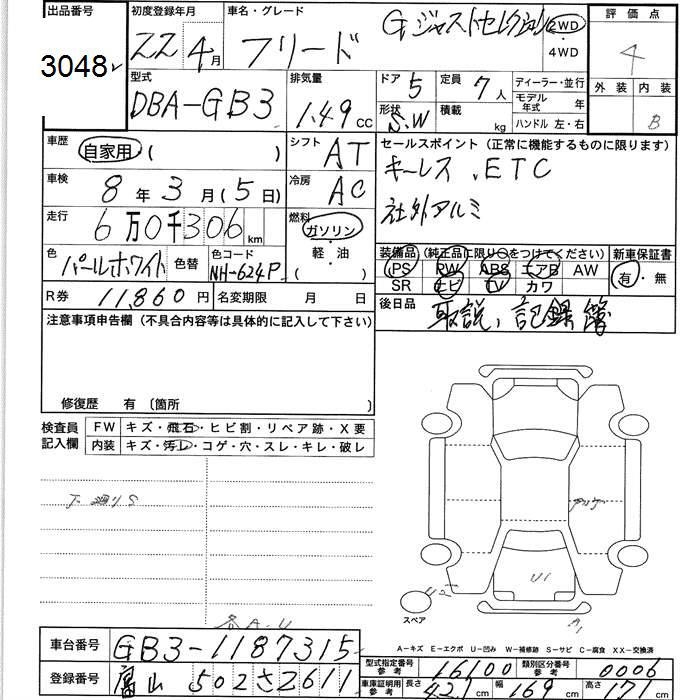 出品番号 初度登録年月 車名・グレード 評価点
3048 22年 4月 フリード G ジャストセレクション 2WD 4WD 4
型式 排気量 ドア 5 定員 7人 ディーラー・並行 外装 内装
DBA-GB3 1.49 cc 形状 S.W 積載 kg モデル年式 年 ハンドル 左・右 B
車歴 自家用 ( ) シフト AT セールスポイント (正常に機能するものに限ります)
車検 8年 3月 (5日) 冷房 AC キーレス、ETC
走行 6万0千306 km 燃料 ガソリン・軽・油 ( ) 社外アルミ
色 パールホワイト 色替 色コード NH-624P 装備品 (純正品に限り○をつけてください) 新車保証書
PS PW ABS エアB AW 有・無
SR ナビ TV カワ
R券 11,860円 名変期限 月 日 後日品 取説、記録簿
注意事項申告欄 (不具合内容等は具体的に記入して下さい)
修復歴 有 〔箇所 〕
検査員記入欄 FW キズ・飛石・ヒビ割・リペア跡・X要
内装 キズ・汚レ・コゲ・穴・スレ・キレ・破レ
下廻りS
U1
スペア A1
各A.U
A-キズ E-エクボ U-凹み W-補修跡 S-サビ C-腐食 XX-交換済
車台番号 GB3-1187315
型式指定番号 参考 16100 類別区分番号 参考 0006
登録番号 富山 502 さ 2611
車庫証明用 参考 長さ 421 cm 幅 169 cm 高さ 171 cm